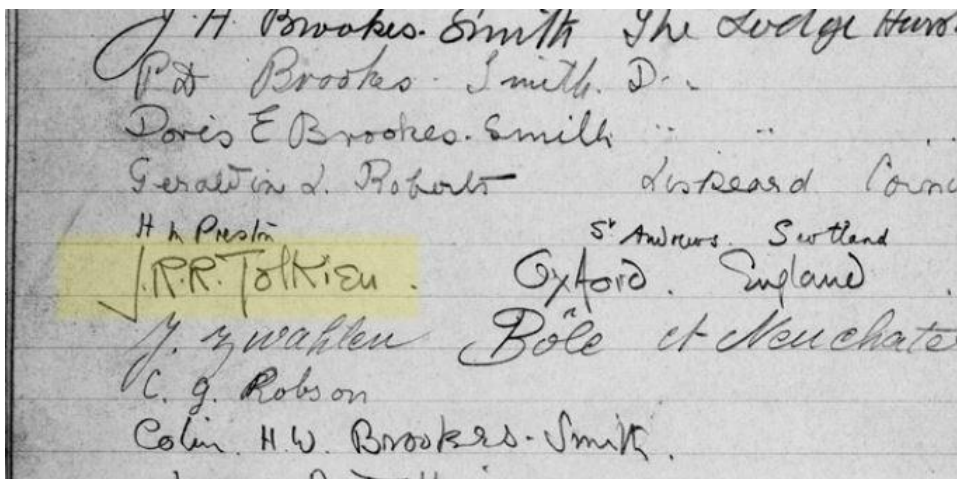 J. H. Brookes-Smith The Lodge
P D Brookes-Smith. Do.
Doris E Brookes-Smith " "
L. Roberts Liskeard
H Preston St Andrews. Scotland
J.R.R. Tolkien. Oxford. England.
J. Zwahlen Bôle et
C. G. Robson
Colin H.W. Brookes-Smith.